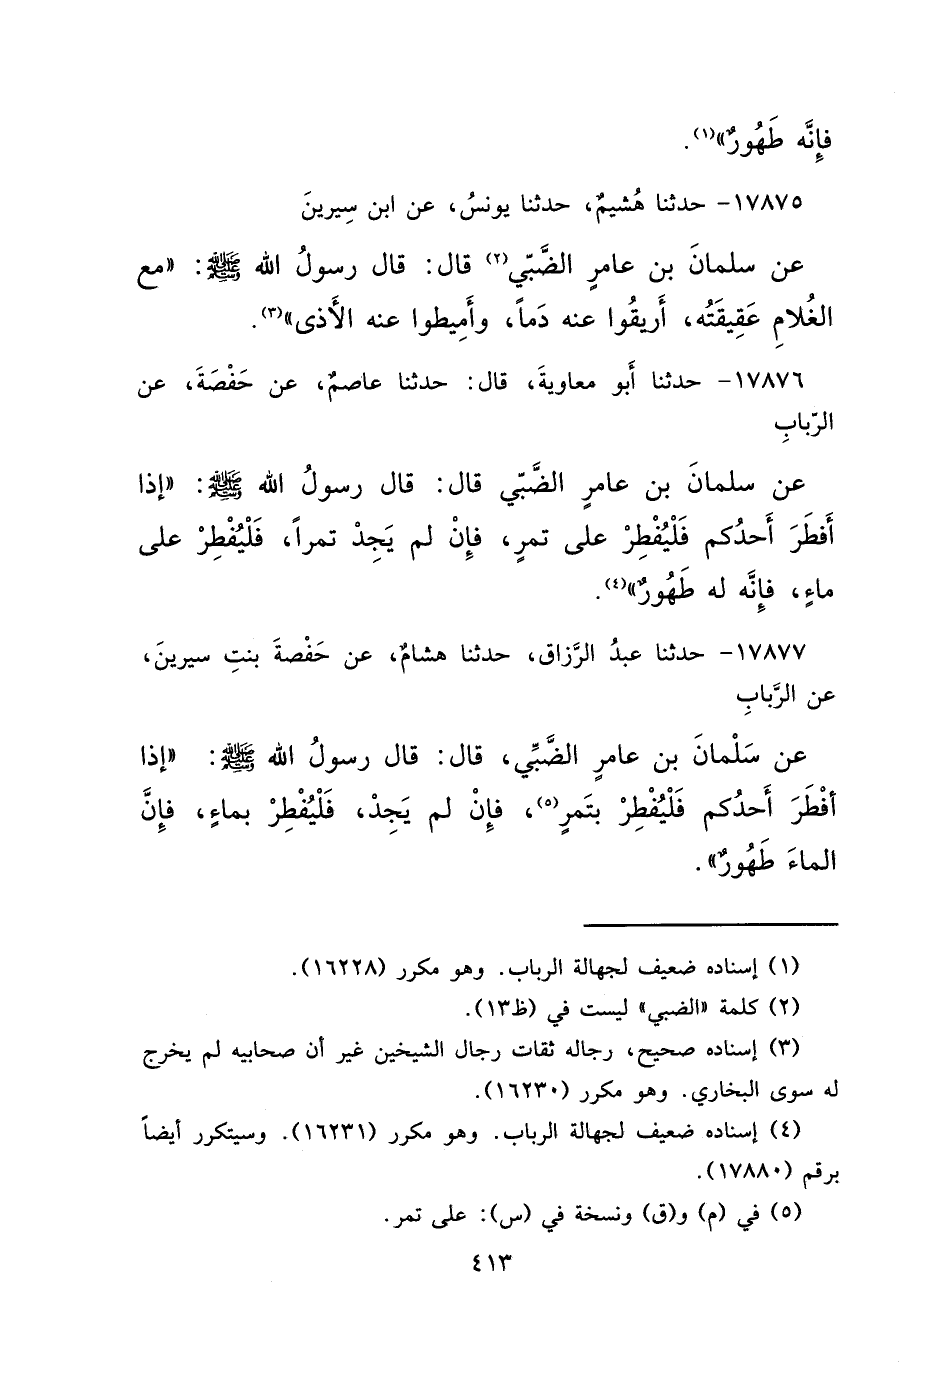 فإِنَّه طَهُورٌ»(١).
١٧٨٧٥- حدثنا هُشيمٌ، حدثنا يونسُ، عن ابن سِيرينَ
عن سلمانَ بن عامرٍ الضَّبّي(٢) قال: قال رسولُ الله ﷺ: «مع
الغُلامِ عَقِيقَتُه، أَريقُوا عنه دَماً، وأَمِيطوا عنه الأَذى»(٣).
١٧٨٧٦- حدثنا أَبو معاويةَ، قال: حدثنا عاصمٌ، عن حَفْصَةَ، عن
الرّبابِ
عن سلمانَ بن عامرٍ الضَّبّي قال: قال رسولُ الله ﷺ: «إذا
أَفطَرَ أَحدُكم فَلْيُفْطِرْ على تمرٍ، فإِنْ لم يَجِدْ تمراً، فَلْيُفْطِرْ على
ماءٍ، فإِنَّه له طَهُورٌ»(٤).
١٧٨٧٧- حدثنا عبدُ الرَّزاق، حدثنا هشامٌ، عن حَفْصةَ بنتِ سيرينَ،
عن الرَّبابِ
عن سَلْمانَ بن عامرٍ الضَّبِّي، قال: قال رسولُ الله ﷺ: «إذا
أفْطَرَ أَحدُكم فَلْيُفْطِرْ بتَمرٍ(٥)، فإِنْ لم يَجِدْ، فَلْيُفْطِرْ بماءٍ، فإِنَّ
الماءَ طَهُورٌ».
(١) إسناده ضعيف لجهالة الرباب. وهو مكرر (١٦٢٢٨).
(٢) كلمة «الضبي» ليست في (ظ١٣).
(٣) إسناده صحيح، رجاله ثقات رجال الشيخين غير أن صحابيه لم يخرج
له سوى البخاري. وهو مكرر (١٦٢٣٠).
(٤) إسناده ضعيف لجهالة الرباب. وهو مكرر (١٦٢٣١). وسيتكرر أيضاً
برقم (١٧٨٨٠).
(٥) في (م) و(ق) ونسخة في (س): على تمر.
٤١٣